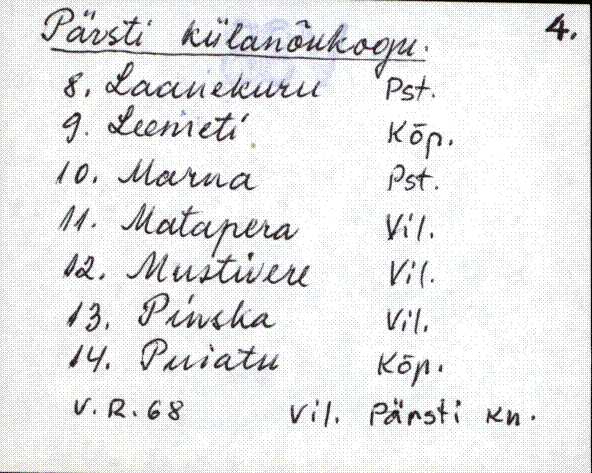 Pärsti külanõukogu. 4.
8. Laanekuru Pst.
9. Leemeti Kõp.
10. Marna Pst.
11. Matapera Vil.
12. Mustivere Vil.
13. Pinska Vil.
14. Puiatu Kõp.
V.R.68 Vil. Pärsti kn.